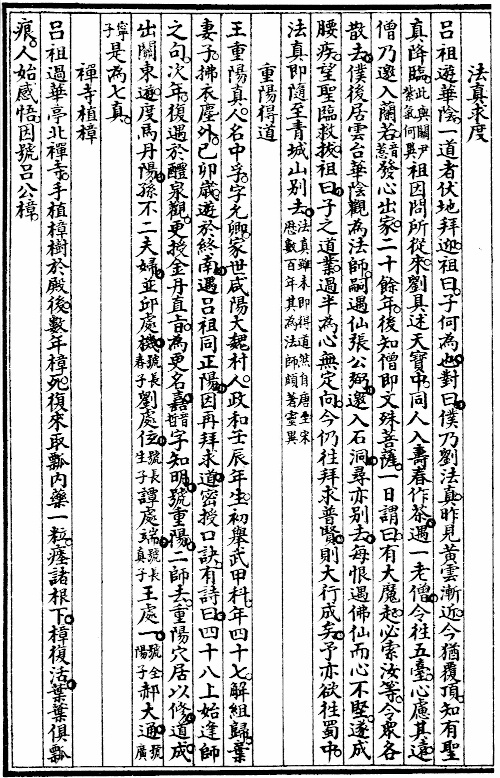 法真求度
呂祖遊華陰一道者伏地拜迎祖曰子何為也對曰僕乃劉法真昨見黃雲漸近今猶覆頂知有聖
真降臨此與關尹紫氣何異祖因問所從來劉具述天寶中同人入壽春作茶遇一老僧令往五臺心慮其遠
僧乃邀入蘭若音惹發心出家二十餘年後知僧即文殊菩薩一日謂曰有大魔起必索汝等令眾各
散去僕後居雲台華陰觀為法師嗣遇仙張公弼邀入石洞尋亦別去每恨遇佛仙而心不堅遂成
腰疾望聖臨救拔祖曰子之道業過半為心無定向今仍往拜求普賢則大行成矣予亦欲往蜀中
法真即隨至青城山別去法真雖未即得道然自唐至宋歷數百年其為法師頗著靈異
重陽得道
王重陽真人名中孚字允卿家世咸陽大魏村人政和壬辰年生初舉武甲科年四十七解組歸葉
妻子拂衣塵外己卯歲遊於終南遇呂祖同正陽因再拜求道密授口訣有詩曰四十八上始逢師
之句次年復遇於醴泉觀更授金丹直旨為更名嘉音哲字知明號重陽二師去重陽穴居以修道成
出關東遊度馬丹陽孫不二夫婦並邱處機號長春子劉處玄號長生子譚處端號長真子王處一號全陽子郝大通號廣
寧子是為七真
禪寺植樟
呂祖過華亭北禪寺手植樟樹於殿後數年樟死復來取瓢內藥一粒瘞諸根下樟復活葉葉俱瓢
痕人始感悟因號呂公樟